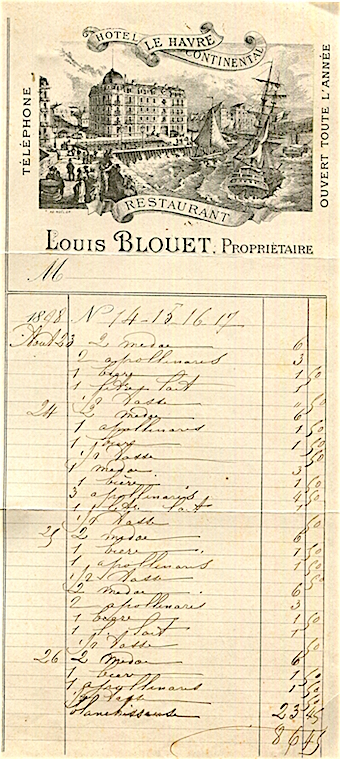 HOTEL LE HAVRE CONTINENTAL
TÉLÉPHONE
OUVERT TOUTE L'ANNÉE
RESTAURANT
LOUIS BLOUET, PROPRIÉTAIRE
M
1898 Nº 14-15-16-17
Aout 23 2 medoc 6
2 apollinares 3
1 bière 1 50
1 lait 1
1/2 tasse " 50
24 2 medoc 6
1 apollinares 1 50
1 bière 1 50
1/2 tasse 50
1 medoc 3
1 bière 1 50
3 apollinares 4 50
1 lait 1
1/2 tasse 50
25 2 medoc 6
1 bière 1 50
1 apollinaris 1 50
1/2 tasse 50
2 medoc 6
2 apollinares 3
1 bière 1 50
1 lait 1
1/2 tasse 50
26 2 medoc 6
1 bière 1 50
1 apollinares 1 50
1/2 tasse 50
blanchisseuse 23 45
86 45